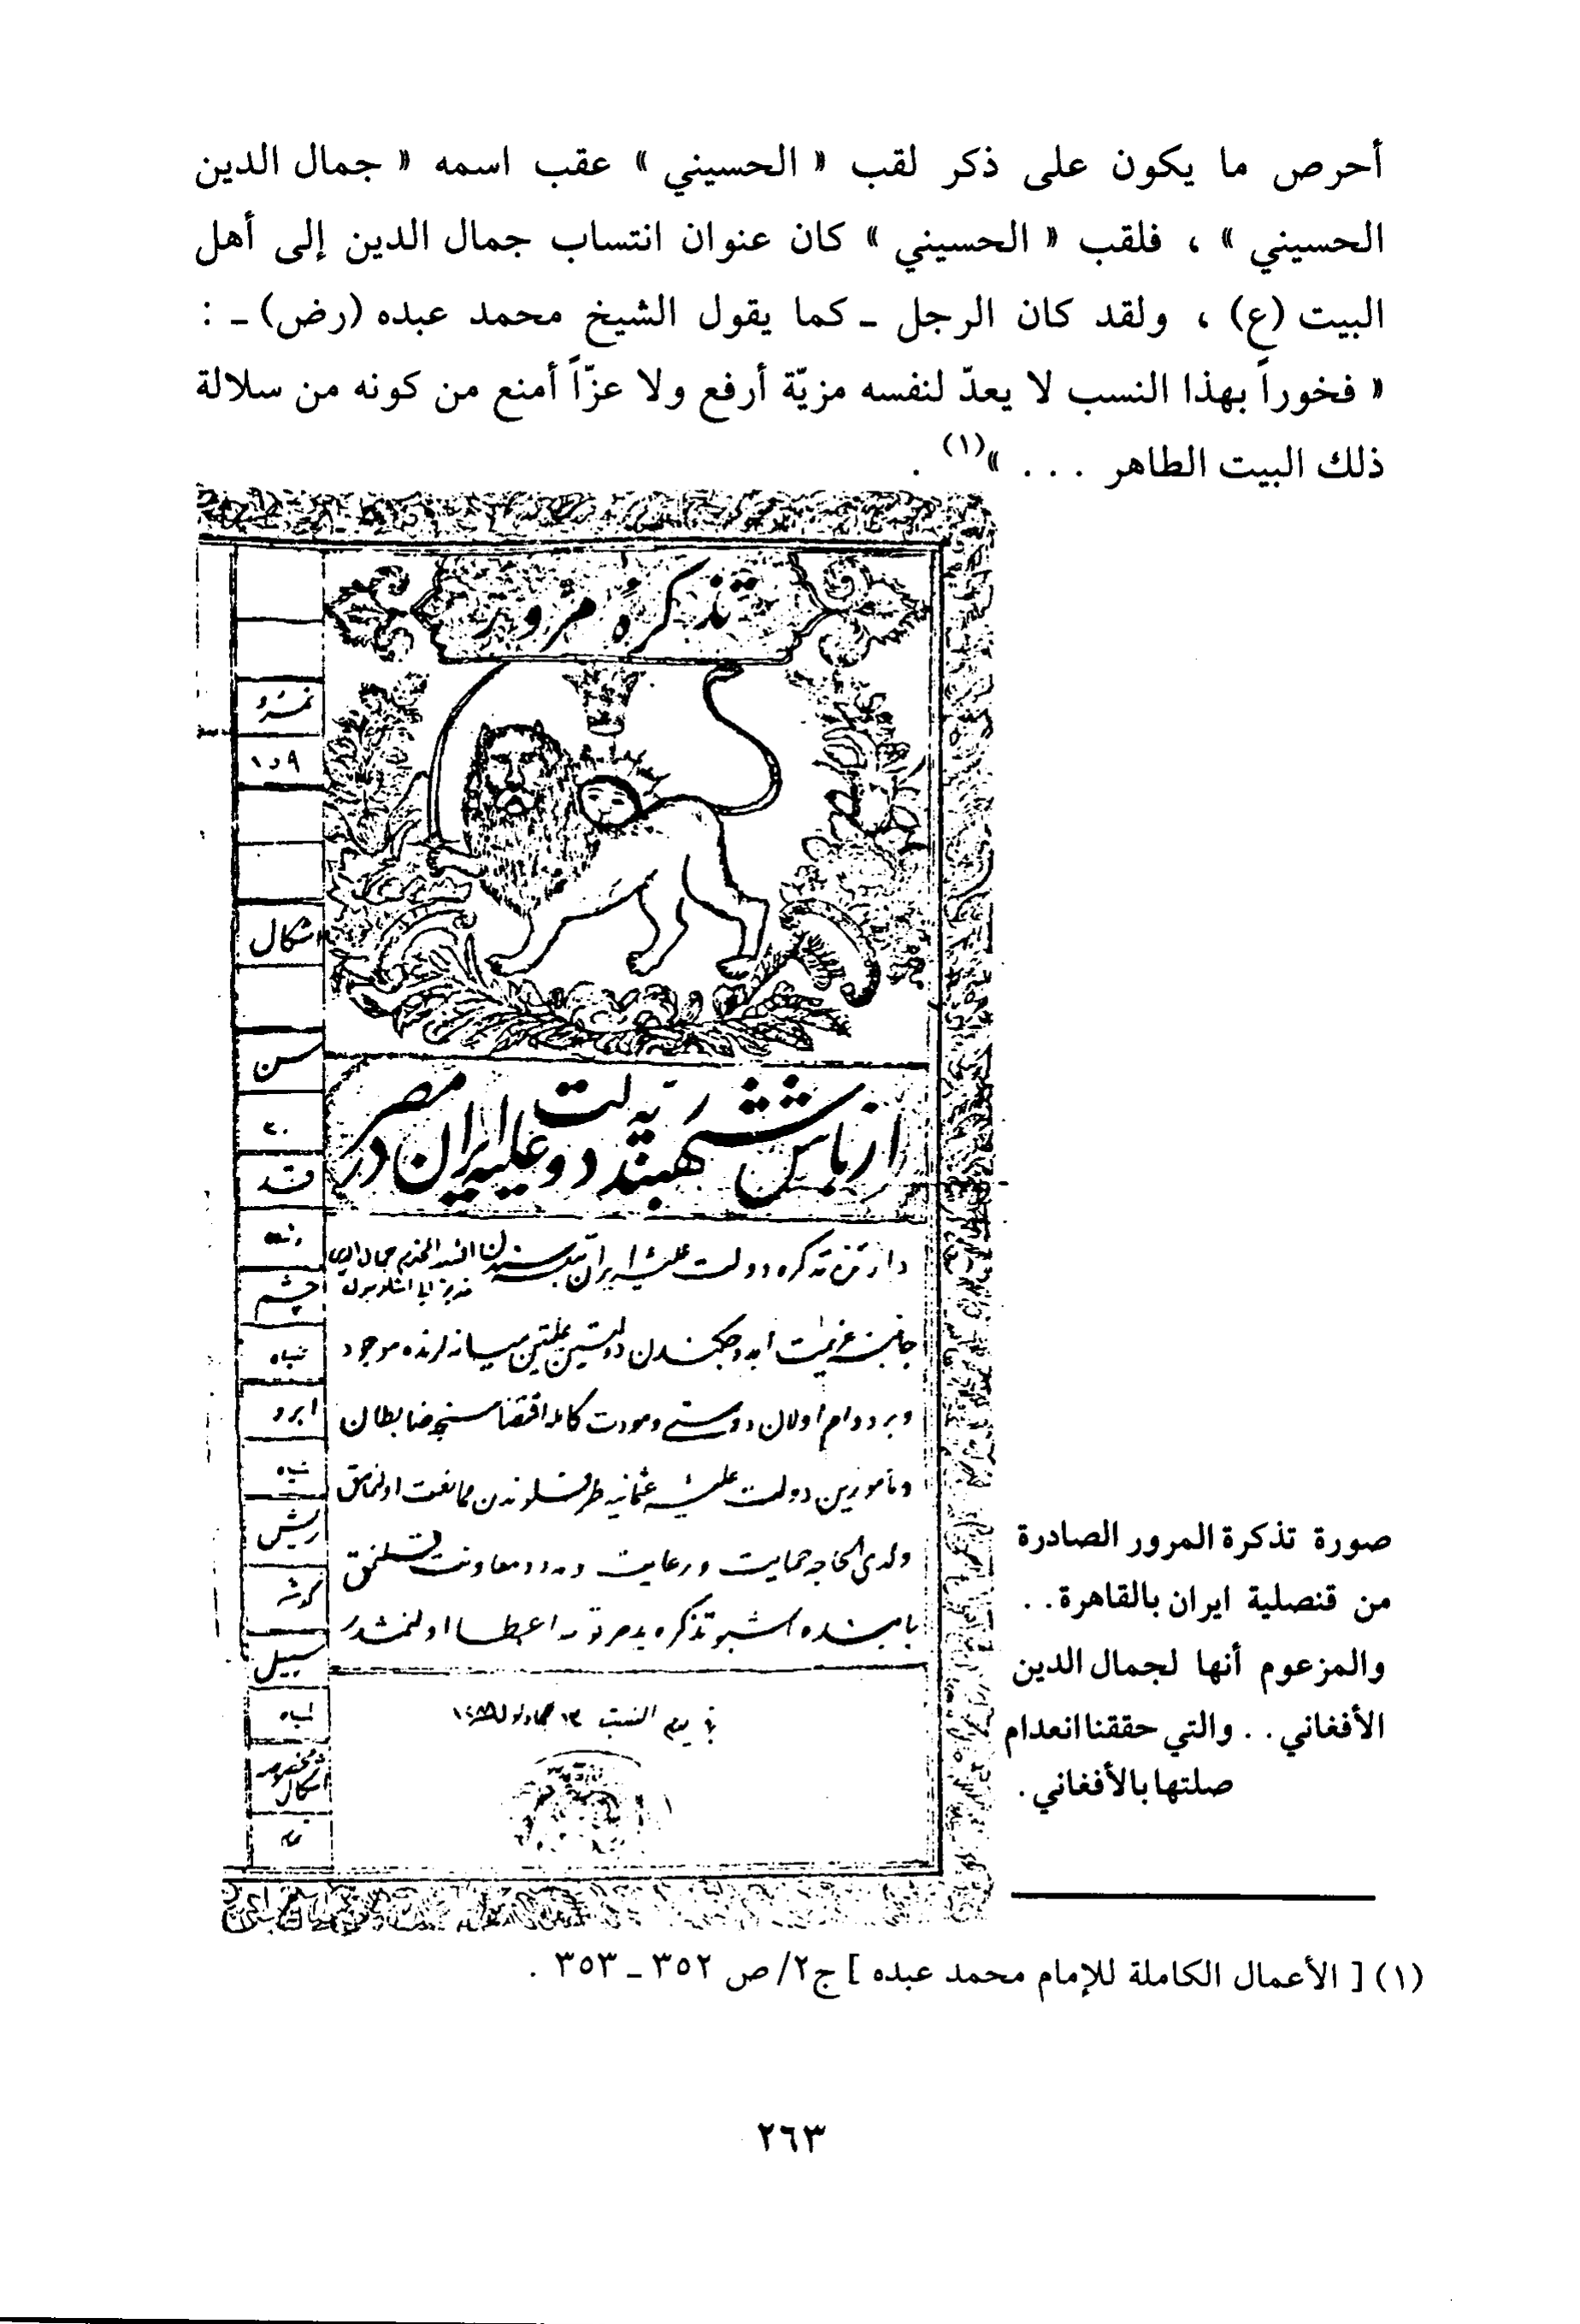 أحرص ما يكون على ذكر لقب « الحسيني » عقب اسمه « جمال الدين
الحسيني » ، فلقب « الحسيني » كان عنوان انتساب جمال الدين إلى أهل
البيت (ع) ، ولقد كان الرجل ـ كما يقول الشيخ محمد عبده (رض) ـ :
« فخوراً بهذا النسب لا يعدّ لنفسه مزيّة أرفع ولا عزّاً أمنع من كونه من سلالة
ذلك البيت الطاهر . . . »(١) .
تذكره مرور
نمره
اشكال
سن
٣٠
قد
چشم
سياه
ابرو
سياه
ريش
سبيل
سياه
از باش شهبندریه دولت علیه ایران در مصر
دولت عليه ايران
جانبنه عزيمت ايده جكندن دولتين عليتين ميانه لرنده موجود
وبردوام اولان دوستى ومودت كامله اقتضاسنجه ضابطان
ومأمورين دولت عليه عثمانيه طرفلرندن ممانعت اولنمامق
ولدى الحاجه حمايت ورعايت ومدد ومعاونت قلنمق
اشبو تذكره اعطا اولنمشدر
صورة تذكرة المرور الصادرة
من قنصلية ايران بالقاهرة . .
والمزعوم أنها لجمال الدين
الأفغاني . . والتي حققنا انعدام
صلتها بالأفغاني .
(١) [ الأعمال الكاملة للإمام محمد عبده ] ج٢/ ص ٣٥٢ ـ ٣٥٣ .
٢٦٣